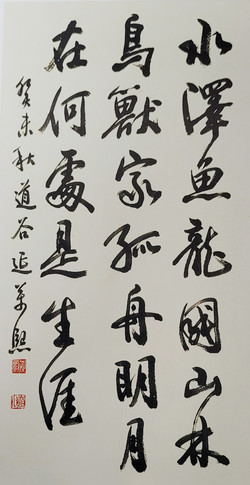 水澤魚龍國山林
鳥獸家孤舟明月
在何處是生涯
癸未秋道谷延萬熙